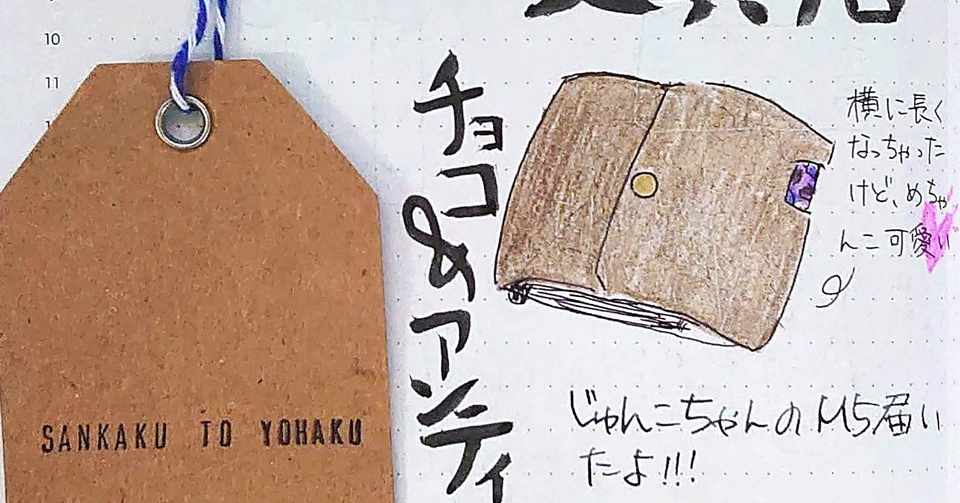 10
11
SANKAKU TO YOHAKU
チョコ&アンティ
横に長く
なっちゃった
けど、めちゃ
んこ可愛い
じゅんこちゃんのM5届い
たよ!!!